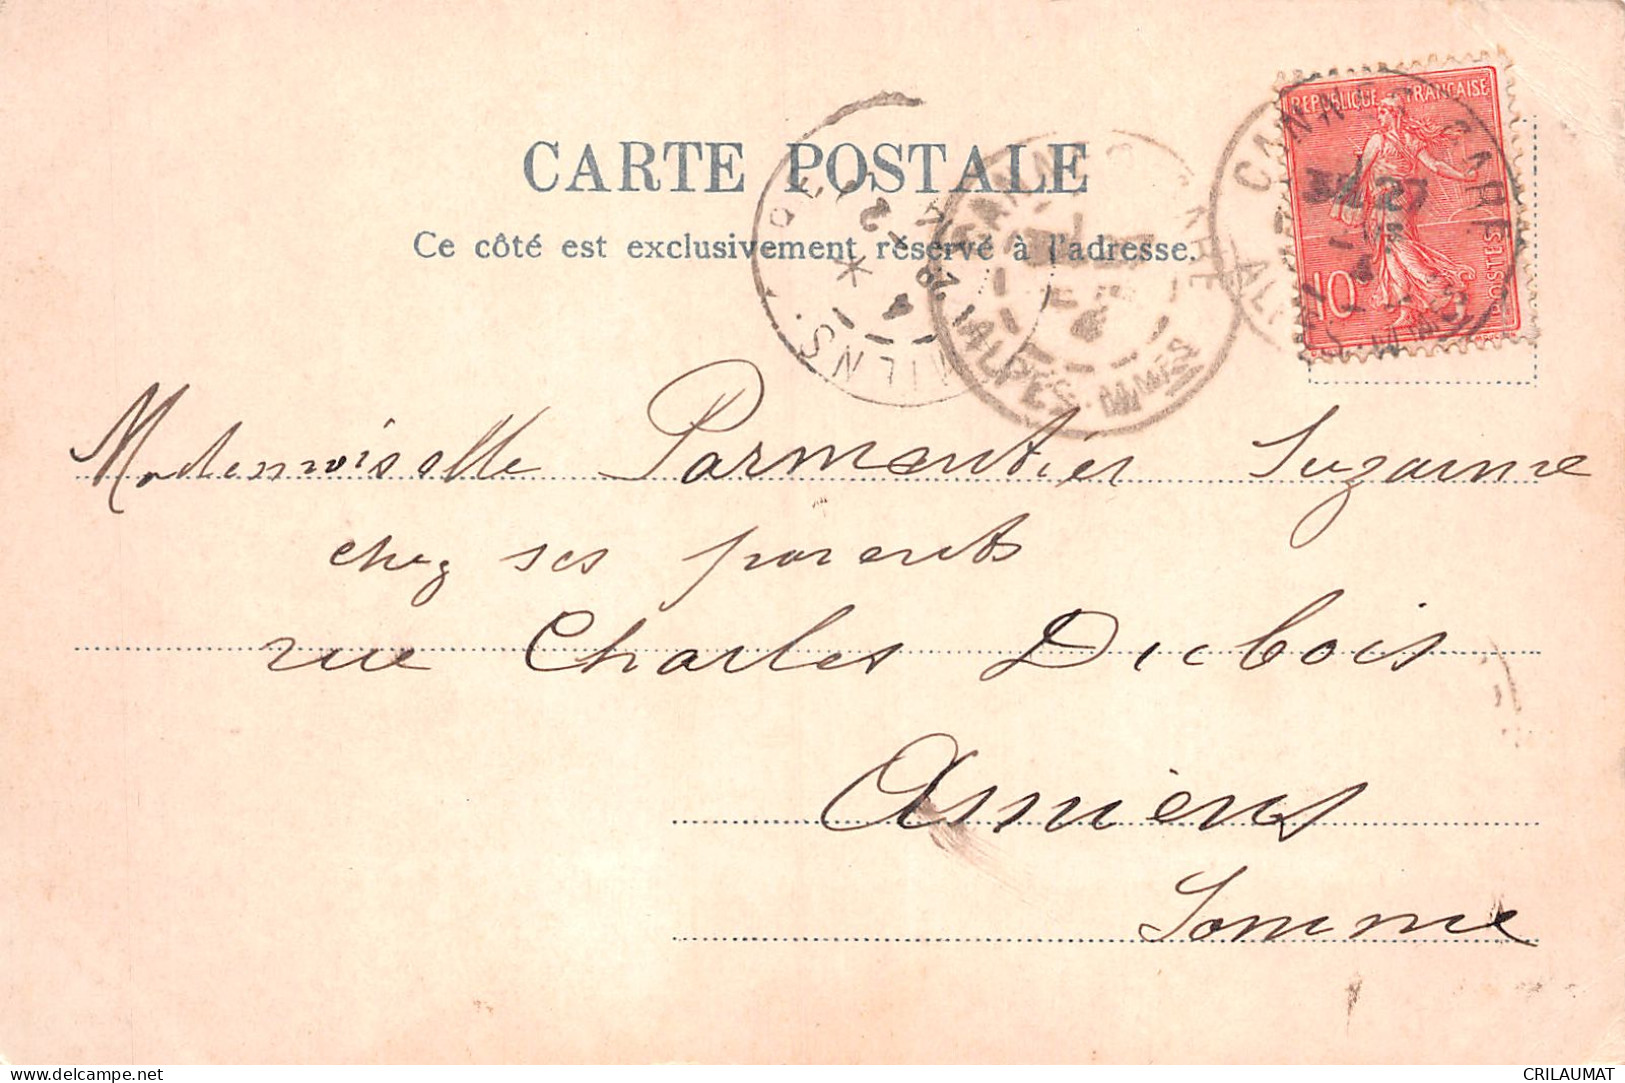 CARTE POSTALE
Ce côté est exclusivement réservé à l'adresse.
REPUBLIQUE FRANÇAISE
POSTES
10
CANNES GARE
ALPES
CANNES GARE
ALPES-MMES
Mademoiselle Parmentier Suzanne
chez ses parents
rue Charles Dubois
Amiens
Somme
www.delcampe.net
CRILAUMAT